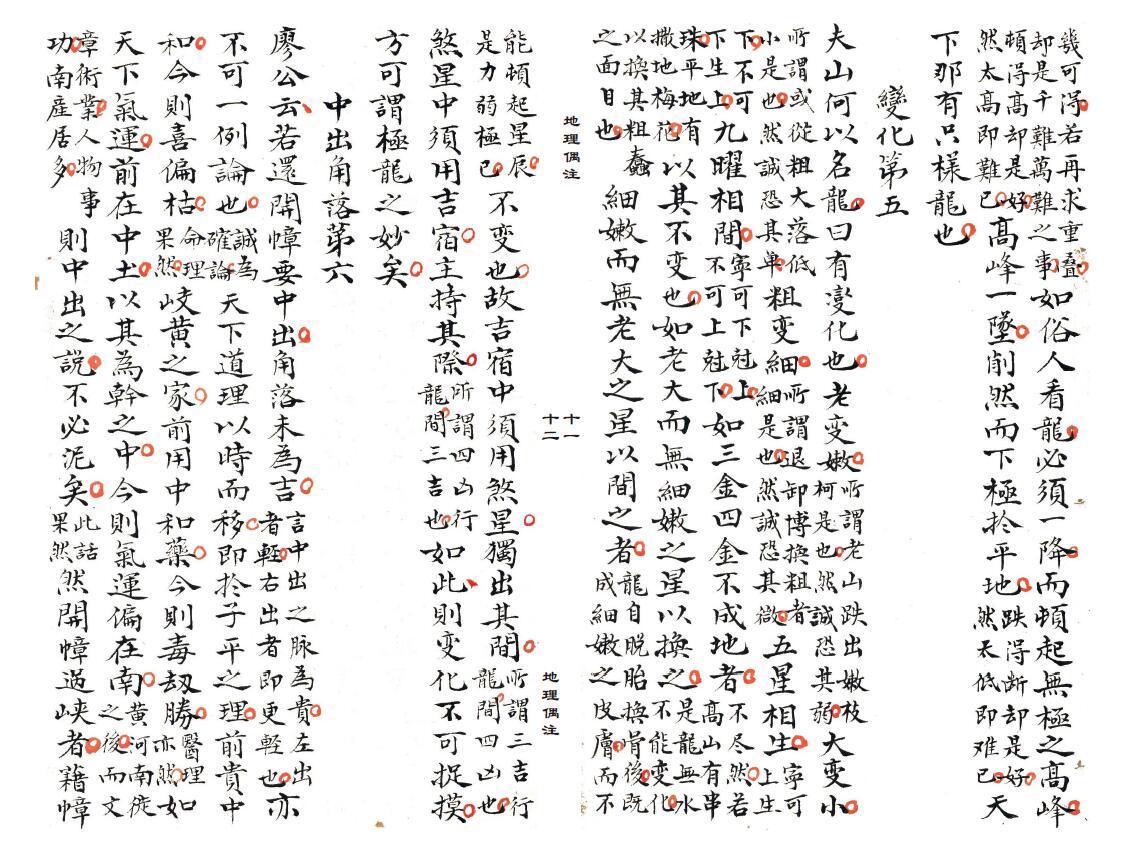 幾可得若再求重疊却是千難萬難之事如俗人看龍必須一降而頓起無極之高峰
頓得高却是好然太高即難已高峰一墜削然而下極於平地跌得断却是好然太低即难已天
下那有只樣龍也
變化第五
夫山何以名龍曰有变化也老变嫩所謂老山跌出嫩枝柯是也然誠恐其弱大变小
所謂或從粗大落低小是也然誠恐其單粗变細所謂退卸博換粗者細是也然誠恐其微五星相生寧可上生
下不可下生上九曜相間寧可下尅上不可上尅下如三金四金不成地者不尽然若高山有串
珠平地有撒地梅花以其不变也如老大而無細嫩之星以換之是龍無水不能变化
以換其粗蠢之面目也細嫩而無老大之星以間之者龍自脫胎換骨後既成細嫩之皮膚而不
地理偶注
十一
十二
地理偶注
能頓起星辰是力弱極已不变也故吉宿中須用煞星獨出其間所謂三吉行龍間四凶也
煞星中須用吉宿主持其際所謂四凶行龍間三吉也如此則变化不可捉摸
方可謂極龍之妙矣
中出角落第六
廖公云若還開幛要中出角落未為吉言中出之脉為貴左出者輕右出者即更輕也亦
不可一例論也誠為確論天下道理以時而移即於子平之理前貴中
和今則喜偏枯命理果然岐黃之家前用中和藥今則毒刼勝醫理亦然如
天下氣運前在中土以其為幹之中今則氣運偏在南黃河南徙之後而文
章術業人物事功南産居多則中出之説不必泥矣此話果然然開幛过峽者藉幛